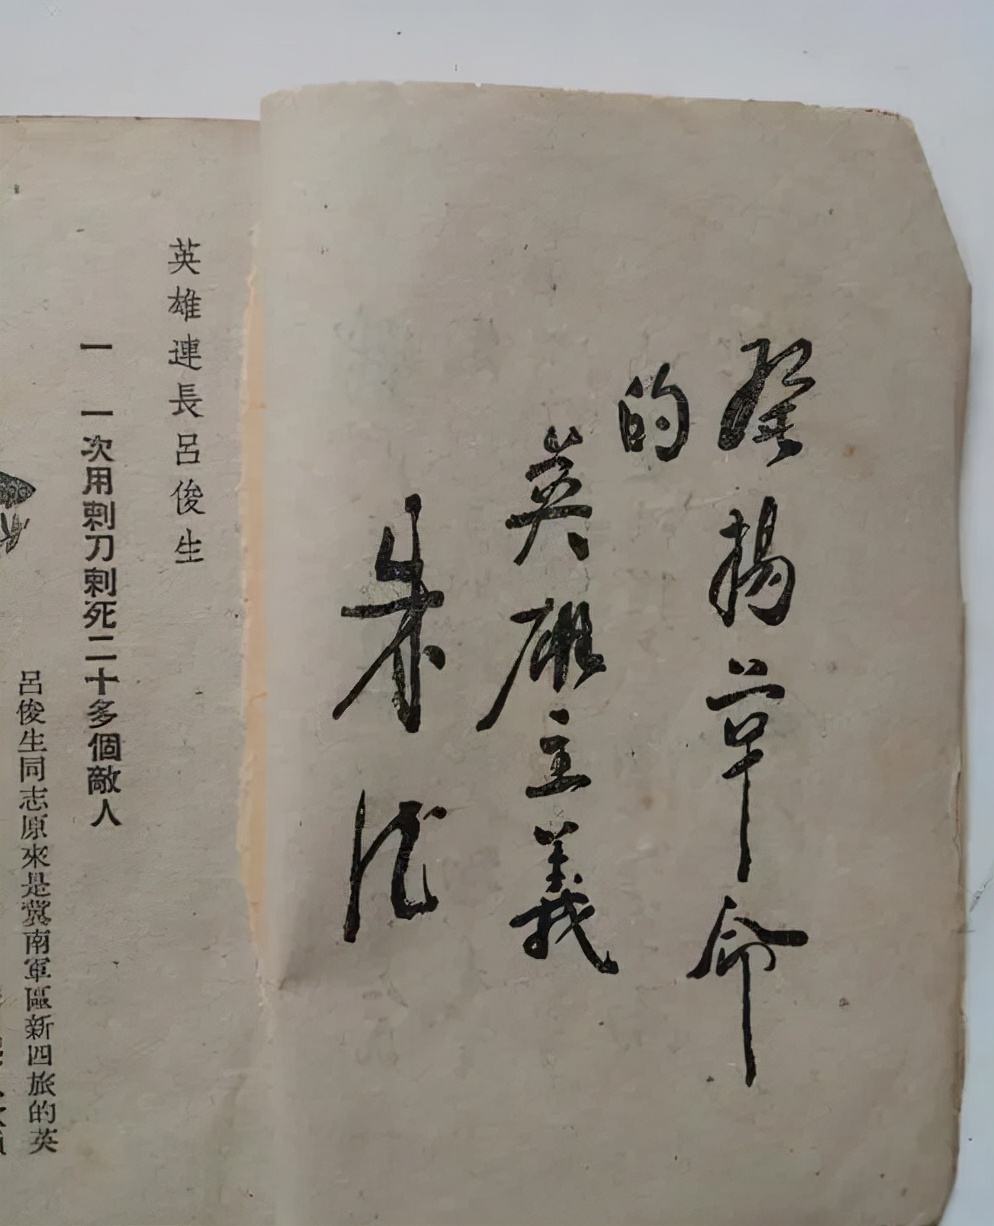 發揚革命
的
英雄主義
朱德
英雄連長呂俊生
一 一次用刺刀刺死二十多個敵人
呂俊生同志原來是冀南軍區新四旅的英